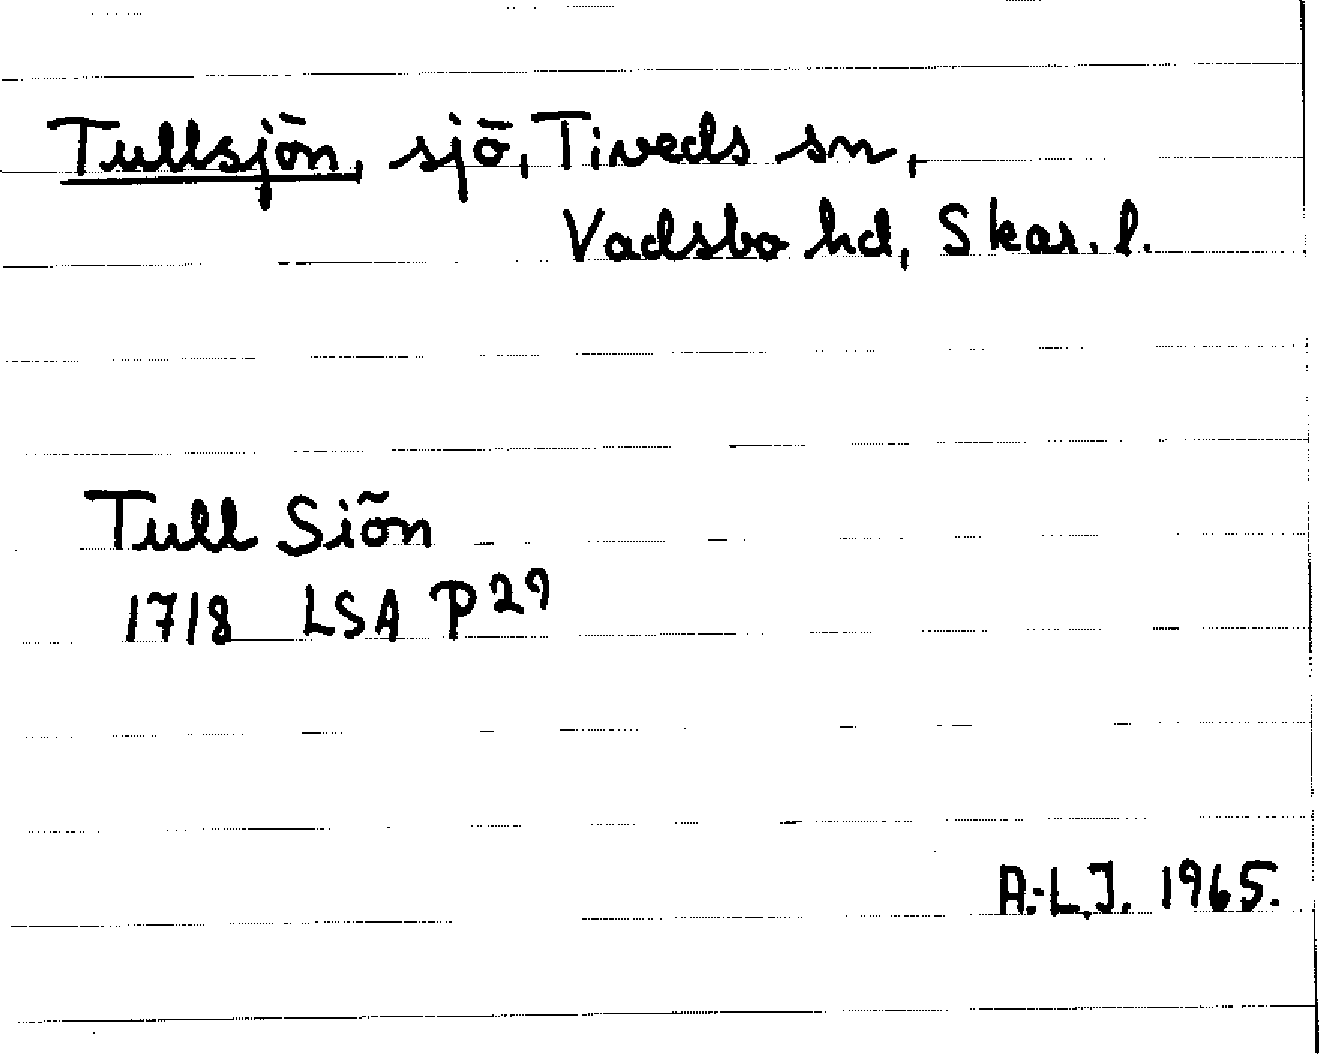 Tullsjön, sjö, Tiveds sn,
Vadsbo hd, Skar. l.
Tull Siön
1718 LSA P 29
A.-L.J. 1965.